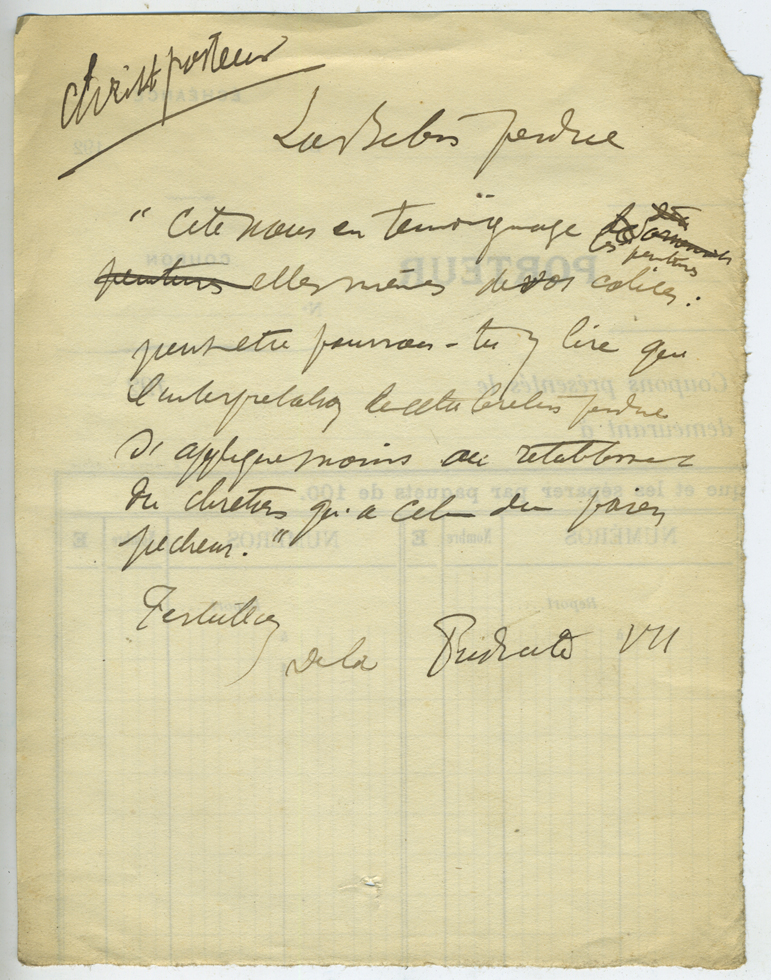 Christ porteur
La Brebis perdue
" Cite nous en temoïgnage
les peintures
peintures elles mêmes de vos calices :
peut etre pourras-tu y lire que
l'interpretation de cette brebis perdue
s'applique moins au retablissement
du chretien qu'a celui du paien
pecheur. "
Tertullien
de la Pudicité VII
PORTEUR
COUPON
N
Coupons présentés le
demeurant à
que et les séparer par paquets de 100.
NUMÉROS
Nombre
E
NUMÉROS
E
Report